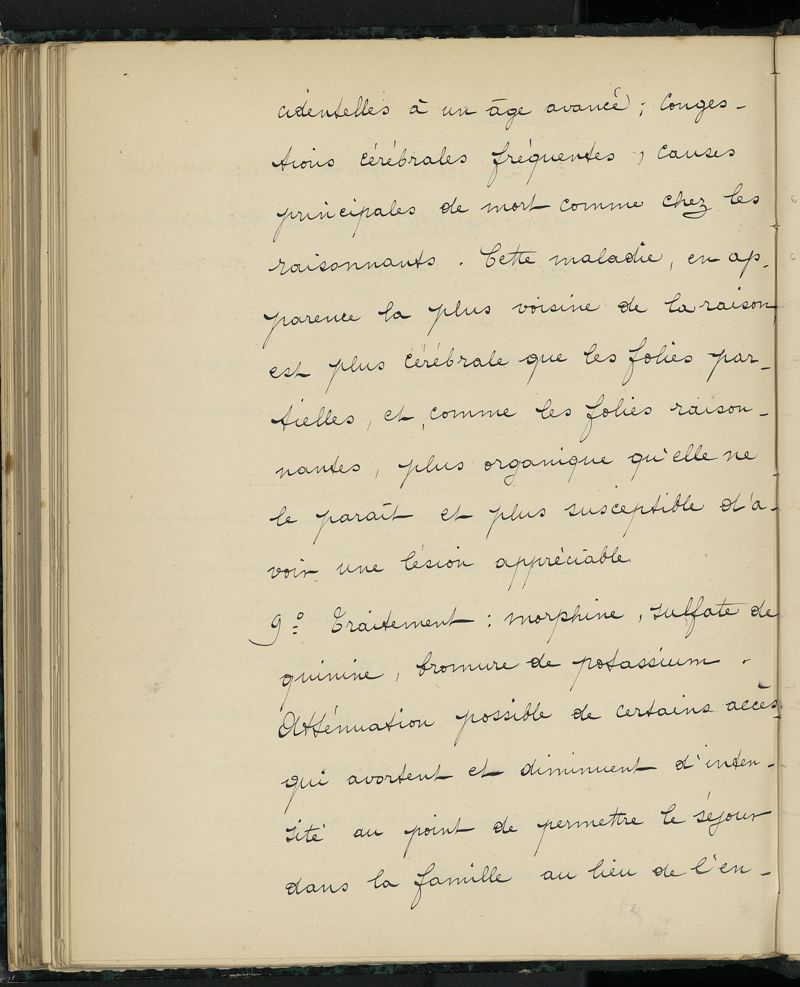 cidentelles à un âge avancé ; Conges-
tions cérébrales fréquentes, causes
principales de mort comme chez les
raisonnants. Cette maladie, en ap-
parence la plus voisine de la raison,
est plus cérébrale que les folies par-
tielles, et, comme les folies raison-
nantes, plus organique qu'elle ne
le paraît et plus susceptible d'a-
voir une lésion appréciable.
9º Traitement : morphine, sulfate de
quinine, bromure de potassium.
Atténuation possible de certains accès
qui avortent et diminuent d'inten-
sité au point de permettre le séjour
dans la famille au lieu de l'en-